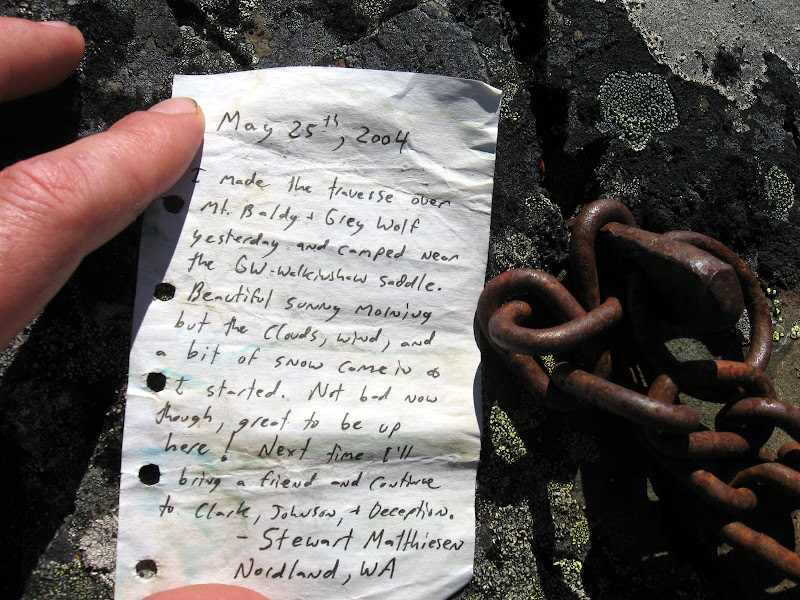 May 25th, 2004
I made the traverse over
Mt. Baldy + Grey Wolf
yesterday and camped near
the GW-Walkinshaw saddle.
Beautiful sunny morning
but the clouds, wind, and
a bit of snow came in as
I started. Not bad now
though, great to be up
here! Next time I'll
bring a friend and continue
to Clark, Johnson, + Deception.
- Stewart Matthiesen
Nordland, WA